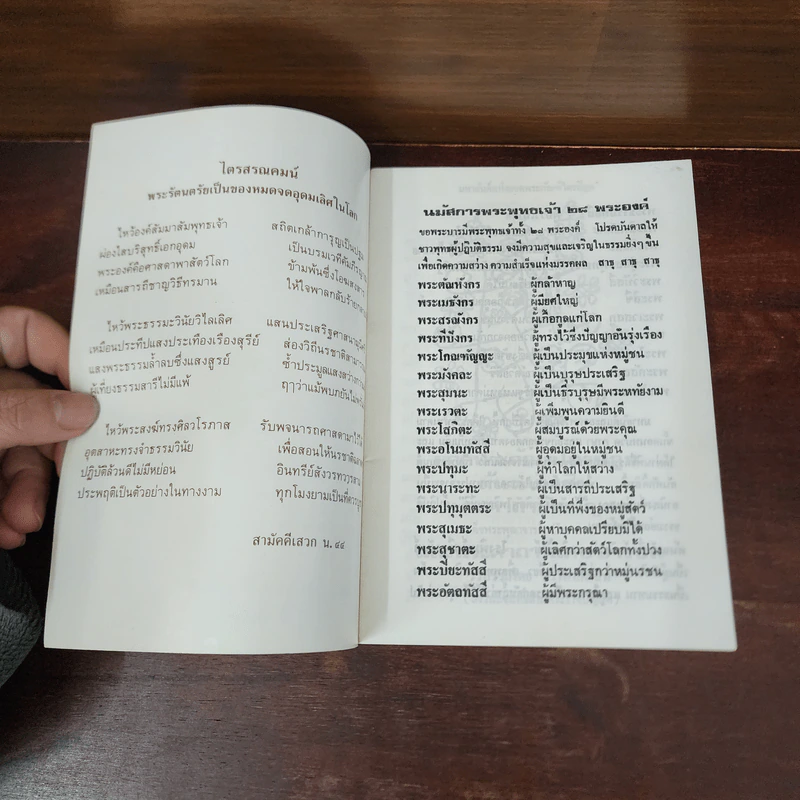 ไตรสรณคมน์
พระรัตนตรัยเป็นของหมดจดอุดมเลิศในโลก
ไหว้องค์สัมมาสัมพุทธเจ้า สถิตเกล้าการุญเป็น
ผ่องใสบริสุทธิ์เอกอุดม เป็นบรมเวที
พระองค์คือศาสดาพาสัตว์โลก ข้ามพ้นซึ่งโอฆ
เหมือนสารถีชาญวิธีทรมาน ให้ใจพาลกลับร้าย
ไหว้พระธรรมะวินัยวิไลเลิศ แสนประเสริฐศาสนา
เหมือนประทีปแสงประเทืองเรืองสุรีย์ ส่องวิถีนรชาติ
แสงพระธรรมล้ำลบซึ่งแสงสูรย์ ซ้ำประมูลแสงสว่าง
ผู้เที่ยงธรรมสารีไม่มีแพ้ ฤๅว่าแม้พบภยันไม่
ไหว้พระสงฆ์ทรงศีลวโรภาส รับพจนารถศาสดา
อุตสาหะทรงจำธรรมวินัย เพื่อสอนให้นรชาติ
ปฏิบัติล้วนดีไม่มีหย่อน อินทรีย์สังวรทวาร
ประพฤติเป็นตัวอย่างในทางงาม ทุกโมงยามเป็นที่
สามัคคีเสวก น. ๔๔
นมัสการพระพุทธเจ้า ๒๘ พระองค์
ขอพระบารมีพระพุทธเจ้าทั้ง ๒๘ พระองค์ โปรดบันดาลให้
ชาวพุทธผู้ปฏิบัติธรรม จงมีความสุขและเจริญในธรรมยิ่งๆ ขึ้น
เพื่อเกิดความสว่าง ความสำเร็จแห่งมรรคผล สาธุ สาธุ สาธุ
พระตัณหังกร ผู้กล้าหาญ
พระเมธังกร ผู้มียศใหญ่
พระสรณังกร ผู้เกื้อกูลแก่โลก
พระทีปังกร ผู้ทรงไว้ซึ่งปัญญาอันรุ่งเรือง
พระโกณฑัญญะ ผู้เป็นประมุขแห่งหมู่ชน
พระมังคละ ผู้เป็นบุรุษประเสริฐ
พระสุมนะ ผู้เป็นธีรบุรุษมีพระหทัยงาม
พระเรวตะ ผู้เพิ่มพูนความยินดี
พระโสภิตะ ผู้สมบูรณ์ด้วยพระคุณ
พระอโนมทัสสี ผู้อุดมอยู่ในหมู่ชน
พระปทุมะ ผู้ทำโลกให้สว่าง
พระนาระทะ ผู้เป็นสารถีประเสริฐ
พระปทุมุตตระ ผู้เป็นที่พึ่งของหมู่สัตว์
พระสุเมธะ ผู้หาบุคคลเปรียบมิได้
พระสุชาตะ ผู้เลิศกว่าสัตว์โลกทั้งปวง
พระปิยะทัสสี ผู้ประเสริฐกว่าหมู่นรชน
พระอัตถทัสสี ผู้มีพระกรุณา